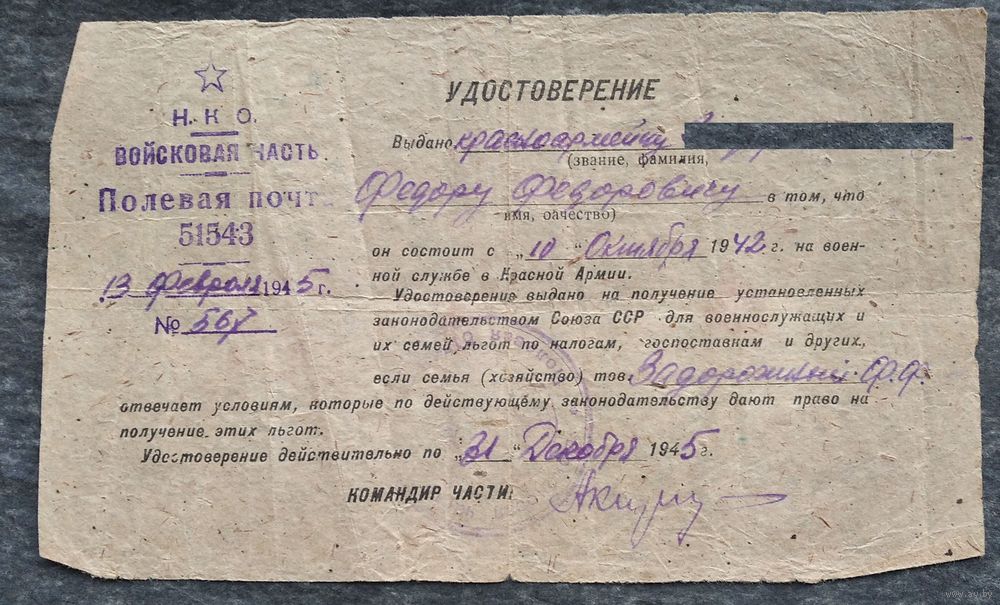 Н. К. О.
ВОЙСКОВАЯ ЧАСТЬ
Полевая почт
51543
13 февраля 1945 г.
№ 567
УДОСТОВЕРЕНИЕ
Выдано красноармейцу
(звание, фамилия,
Федору Федоровичу в том, что
имя, оачество)
он состоит с „10 “ Октября 1942 г. на воен-
ной службе в Красной Армии.
Удостоверение выдано на получение установленных
законодательством Союза ССР для военнослужащих и
их семей льгот по налогам, госпоставкам и других,
если семья (хозяйство) тов. Задорожный Ф.Ф.
отвечает условиям, которые по действующему законодательству дают право на
получение этих льгот.
Удостоверение действительно по „31 “ Декабря 1945 г.
КОМАНДИР ЧАСТИ:
www.ay.by